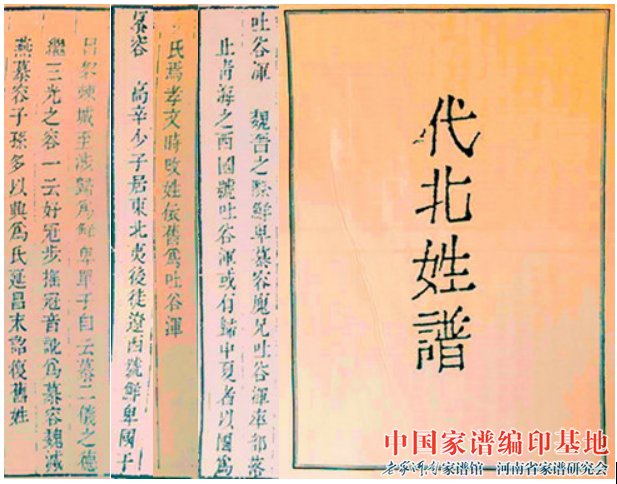 代北姓譜
吐谷渾 魏晉之際鮮卑慕容廆兄吐谷渾率部落
止青海之西國號吐谷渾或有歸中夏者以國爲
氏焉孝文時改姓依舊爲吐谷渾
慕容 高辛少子居東北夷後徙遼西號鮮卑國于
昌黎棘城至涉歸爲鮮卑單于自云慕二儀之德
繼三光之容一云好冠步搖冠音訛爲慕容魏滅
燕慕容子孫多以輿爲氏延昌末詔復舊姓
中国家谱编印基地
老家河南家谱馆—河南省家谱研究会